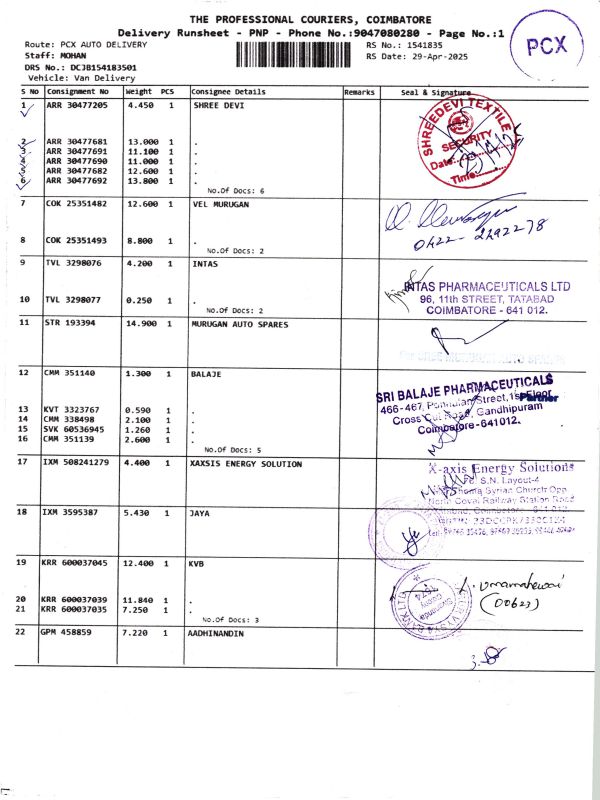 THE PROFESSIONAL COURIERS, COIMBATORE
Delivery Runsheet - PNP - Phone No.:9047080280 - Page No.:1
Route: PCX AUTO DELIVERY
RS No.: 1541835
Staff: MOHAN
RS Date: 29-Apr-2025
DRS No.: DCJB154183501
Vehicle: Van Delivery
PCX
S No Consignment No Weight PCS Consignee Details Remarks Seal & Signature
1 ARR 30477205 4.450 1 SHREE DEVI
SHREEDEVI TEXTILE
SECURITY
Date:
Time:
2 ARR 30477681 13.000 1 .
3 ARR 30477691 11.100 1 .
4 ARR 30477690 11.000 1 .
5 ARR 30477682 12.600 1 .
6 ARR 30477692 13.800 1 .
No.Of Docs: 6
7 COK 25351482 12.600 1 VEL MURUGAN
8 COK 25351493 8.800 1 .
No.Of Docs: 2
9 TVL 3298076 4.200 1 INTAS
INTAS PHARMACEUTICALS LTD
96, 11th STREET, TATABAD
COIMBATORE - 641 012.
10 TVL 3298077 0.250 1 .
No.Of Docs: 2
11 STR 193394 14.900 1 MURUGAN AUTO SPARES
12 CMM 351140 1.300 1 BALAJE
SRI BALAJE PHARMACEUTICALS
466-467, Street, 1st Floor
Partner
Cross Cut Road, Gandhipuram
Coimbatore-641012.
13 KVT 3323767 0.590 1 .
14 CMM 338498 2.100 1 .
15 SVK 60536945 1.260 1 .
16 CMM 351139 2.600 1 .
No.Of Docs: 5
17 IXM 508241279 4.400 1 XAXSIS ENERGY SOLUTION
X-axis Energy Solutions
S.N. Layout-4
Syrian Church Opp
North Coval Railway Station Road
18 IXM 3595387 5.430 1 JAYA
19 KRR 600037045 12.400 1 KVB
20 KRR 600037039 11.840 1 .
21 KRR 600037035 7.250 1 .
No.Of Docs: 3
(00623)
22 GPM 458859 7.220 1 AADHINANDIN